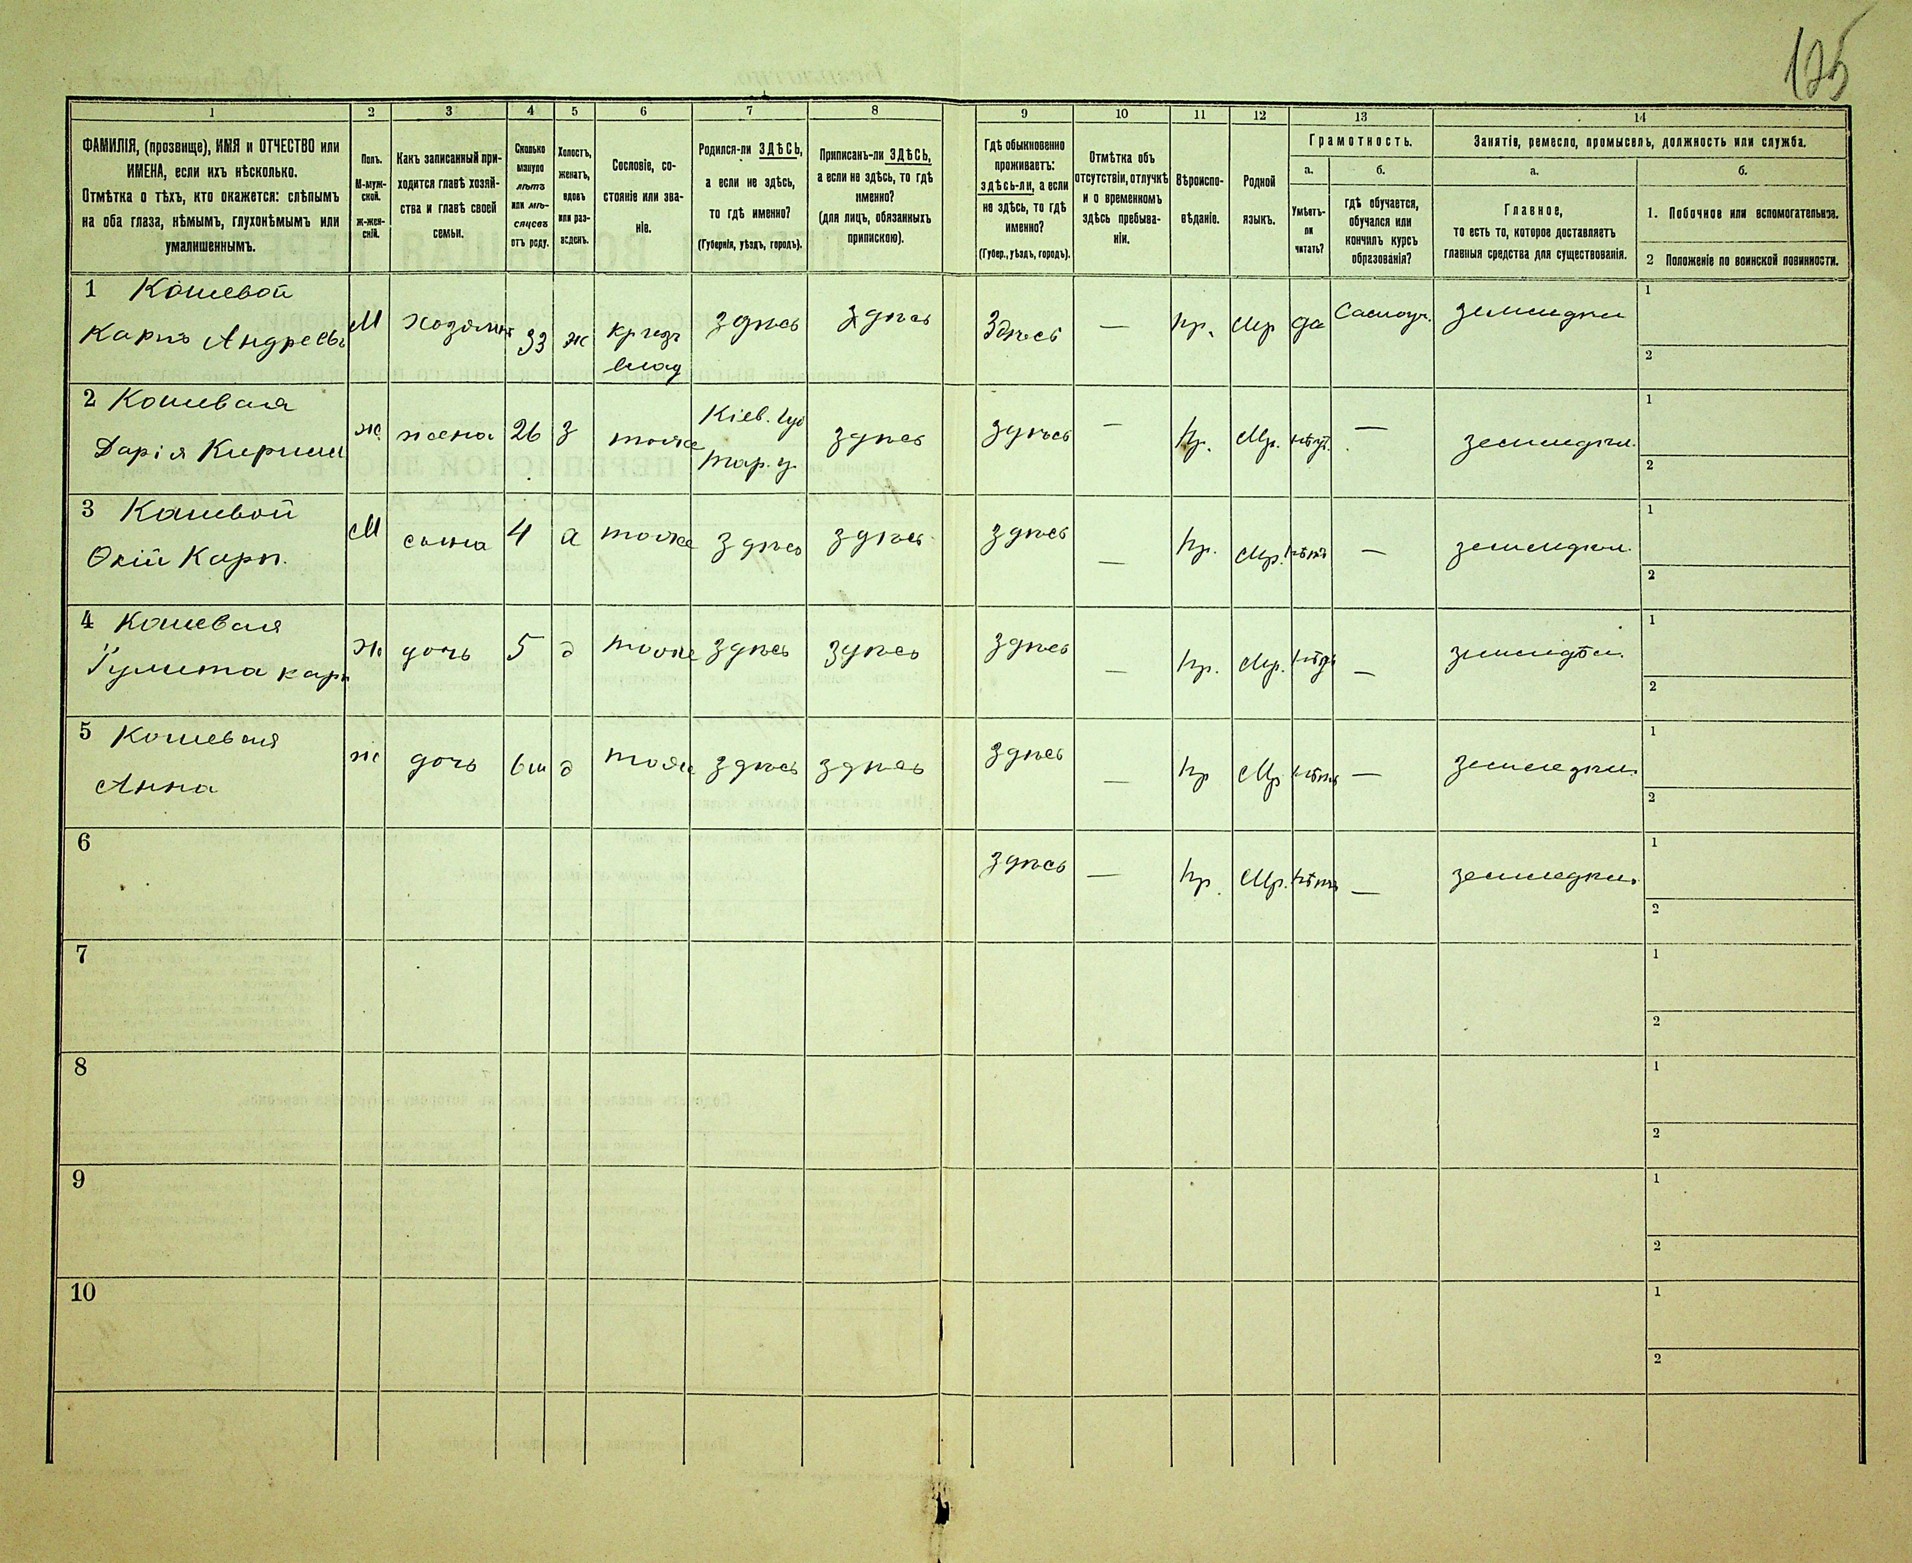 125
1
ФАМИЛІЯ, (прозвище), ИМЯ и ОТЧЕСТВО или
ИМЕНА, если ихъ нѣсколько.
Отмѣтка о тѣхъ, кто окажется: слѣпымъ
на оба глаза, нѣмымъ, глухонѣмымъ или
умалишеннымъ.
2
Полъ.
М-муж-
ской.
ж-жен-
скій.
3
Какъ записанный при-
ходится главѣ хозяй-
ства и главѣ своей
семьи.
4
Сколько
минуло
лѣтъ
или мѣ-
сяцевъ
отъ роду.
5
Холостъ,
женатъ,
вдовъ
или раз-
веденъ.
6
Сословіе, со-
стояніе или зва-
ніе.
7
Родился-ли ЗДѢСЬ,
а если не здѣсь,
то гдѣ именно?
(Губернія, уѣздъ, городъ).
8
Приписанъ-ли ЗДѢСЬ,
а если не здѣсь, то гдѣ
именно?
(для лицъ, обязанныхъ
припискою).
9
Гдѣ обыкновенно
проживаетъ:
здѣсь-ли, а если
не здѣсь, то гдѣ
именно?
(Губер., уѣздъ, городъ).
10
Отмѣтка объ
отсутствіи, отлучкѣ
и о временномъ
здѣсь пребыва-
ніи.
11
Вѣроиспо-
вѣданіе.
12
Родной
языкъ.
13
Грамотность.
а.
Умѣетъ-
ли
читать?
б.
гдѣ обучается,
обучался или
кончилъ курсъ
образованія?
14
Занятіе, ремесло, промыселъ, должность или служба.
а.
Главное,
то есть то, которое доставляетъ
главныя средства для существованія.
б.
1. Побочное или вспомогательное.
2 Положеніе по воинской повинности.
1 Кошевой
Карпъ Андреевъ
М
хозяинъ
33
ж
кр
влад
здѣсь
здѣсь
Здѣсь
—
пр.
Мр
да
земледѣл
1
2
2 Кошевая
Дарія
ж.
жена
26
з
тоже
Кіев. губ
Тар. у.
здѣсь
здѣсь
—
пр.
Мр.
нѣтъ
—
земледѣл.
1
2
3 Кошевой
Карп.
М
сынъ
4
тоже
здѣсь
здѣсь
здѣсь
—
пр.
Мр.
нѣтъ
—
земледѣл.
1
2
4 Кошевая
Іулита Карп
ж
дочь
5
д
тоже
здѣсь
здѣсь
здѣсь
—
пр.
Мр.
нѣтъ
—
земледѣл.
1
2
5 Кошевая
Анна
ж
дочь
6м
д
тоже
здѣсь
здѣсь
здѣсь
—
пр
Мр
нѣтъ
—
земледѣл.
1
2
6
здѣсь
—
пр.
Мр.
нѣтъ
—
земледѣл.
1
2
7
1
2
8
1
2
9
1
2
10
1
2